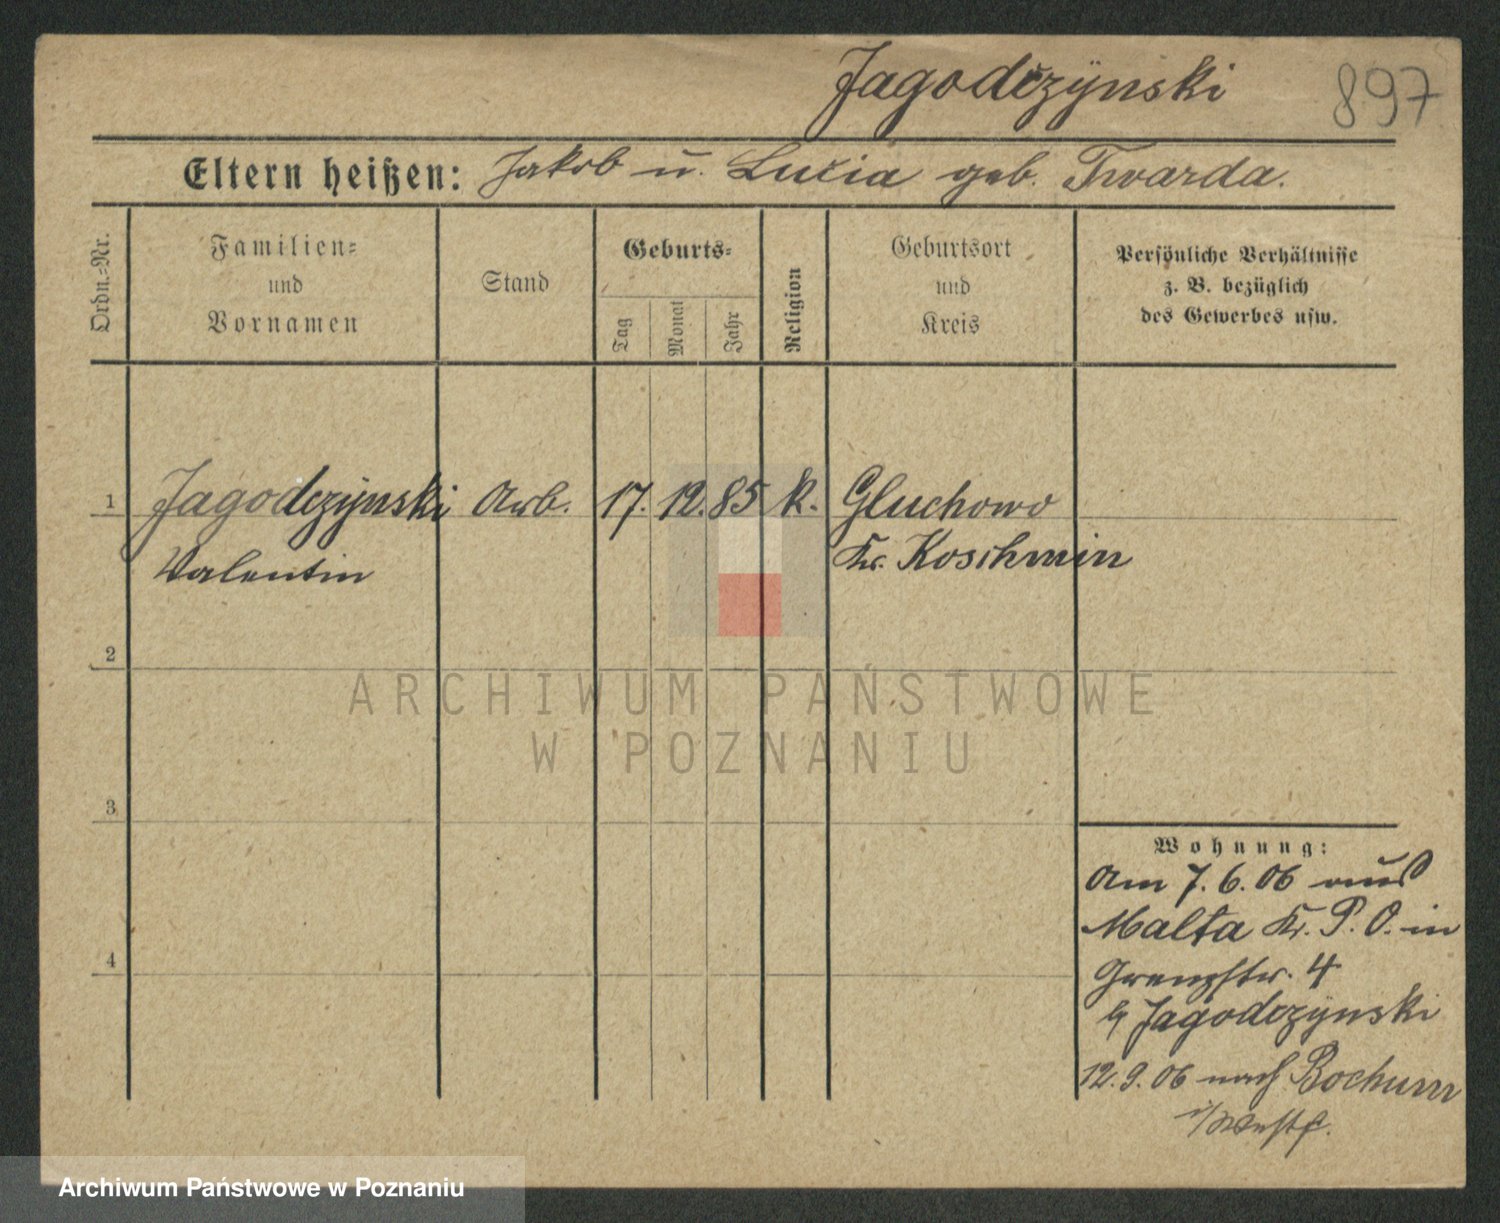 Jagodczÿnski 897
Eltern heißen: Jakob u. Luzia geb. Twarda.
Ordn.=Nr.
Familien=
und
Vornamen
Stand
Geburts=
Tag
Monat
Jahr
Religion
Geburtsort
und
Kreis
Persönliche Verhältnisse
z. B. bezüglich
des Gewerbes usw.
1 Jagodczÿnski Arb. 17. 12. 85 k. Gluchowo
Valentin Kr. Koschmin
2
ARCHIWUM PAŃSTWOWE
W POZNANIU
3
Wohnung:
Am 7. 6. 06 aus
Malta Kr. P. O. in
4
Grenzstr. 4
b/ Jagodczÿnski
12. 9. 06 nach Bochum
i/Westf.
Archiwum Państwowe w Poznaniu